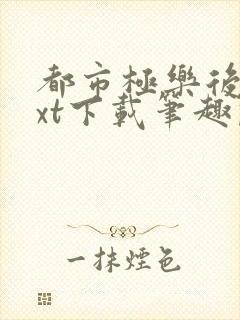 都市極樂後
xt下載筆趣
一抹煙色